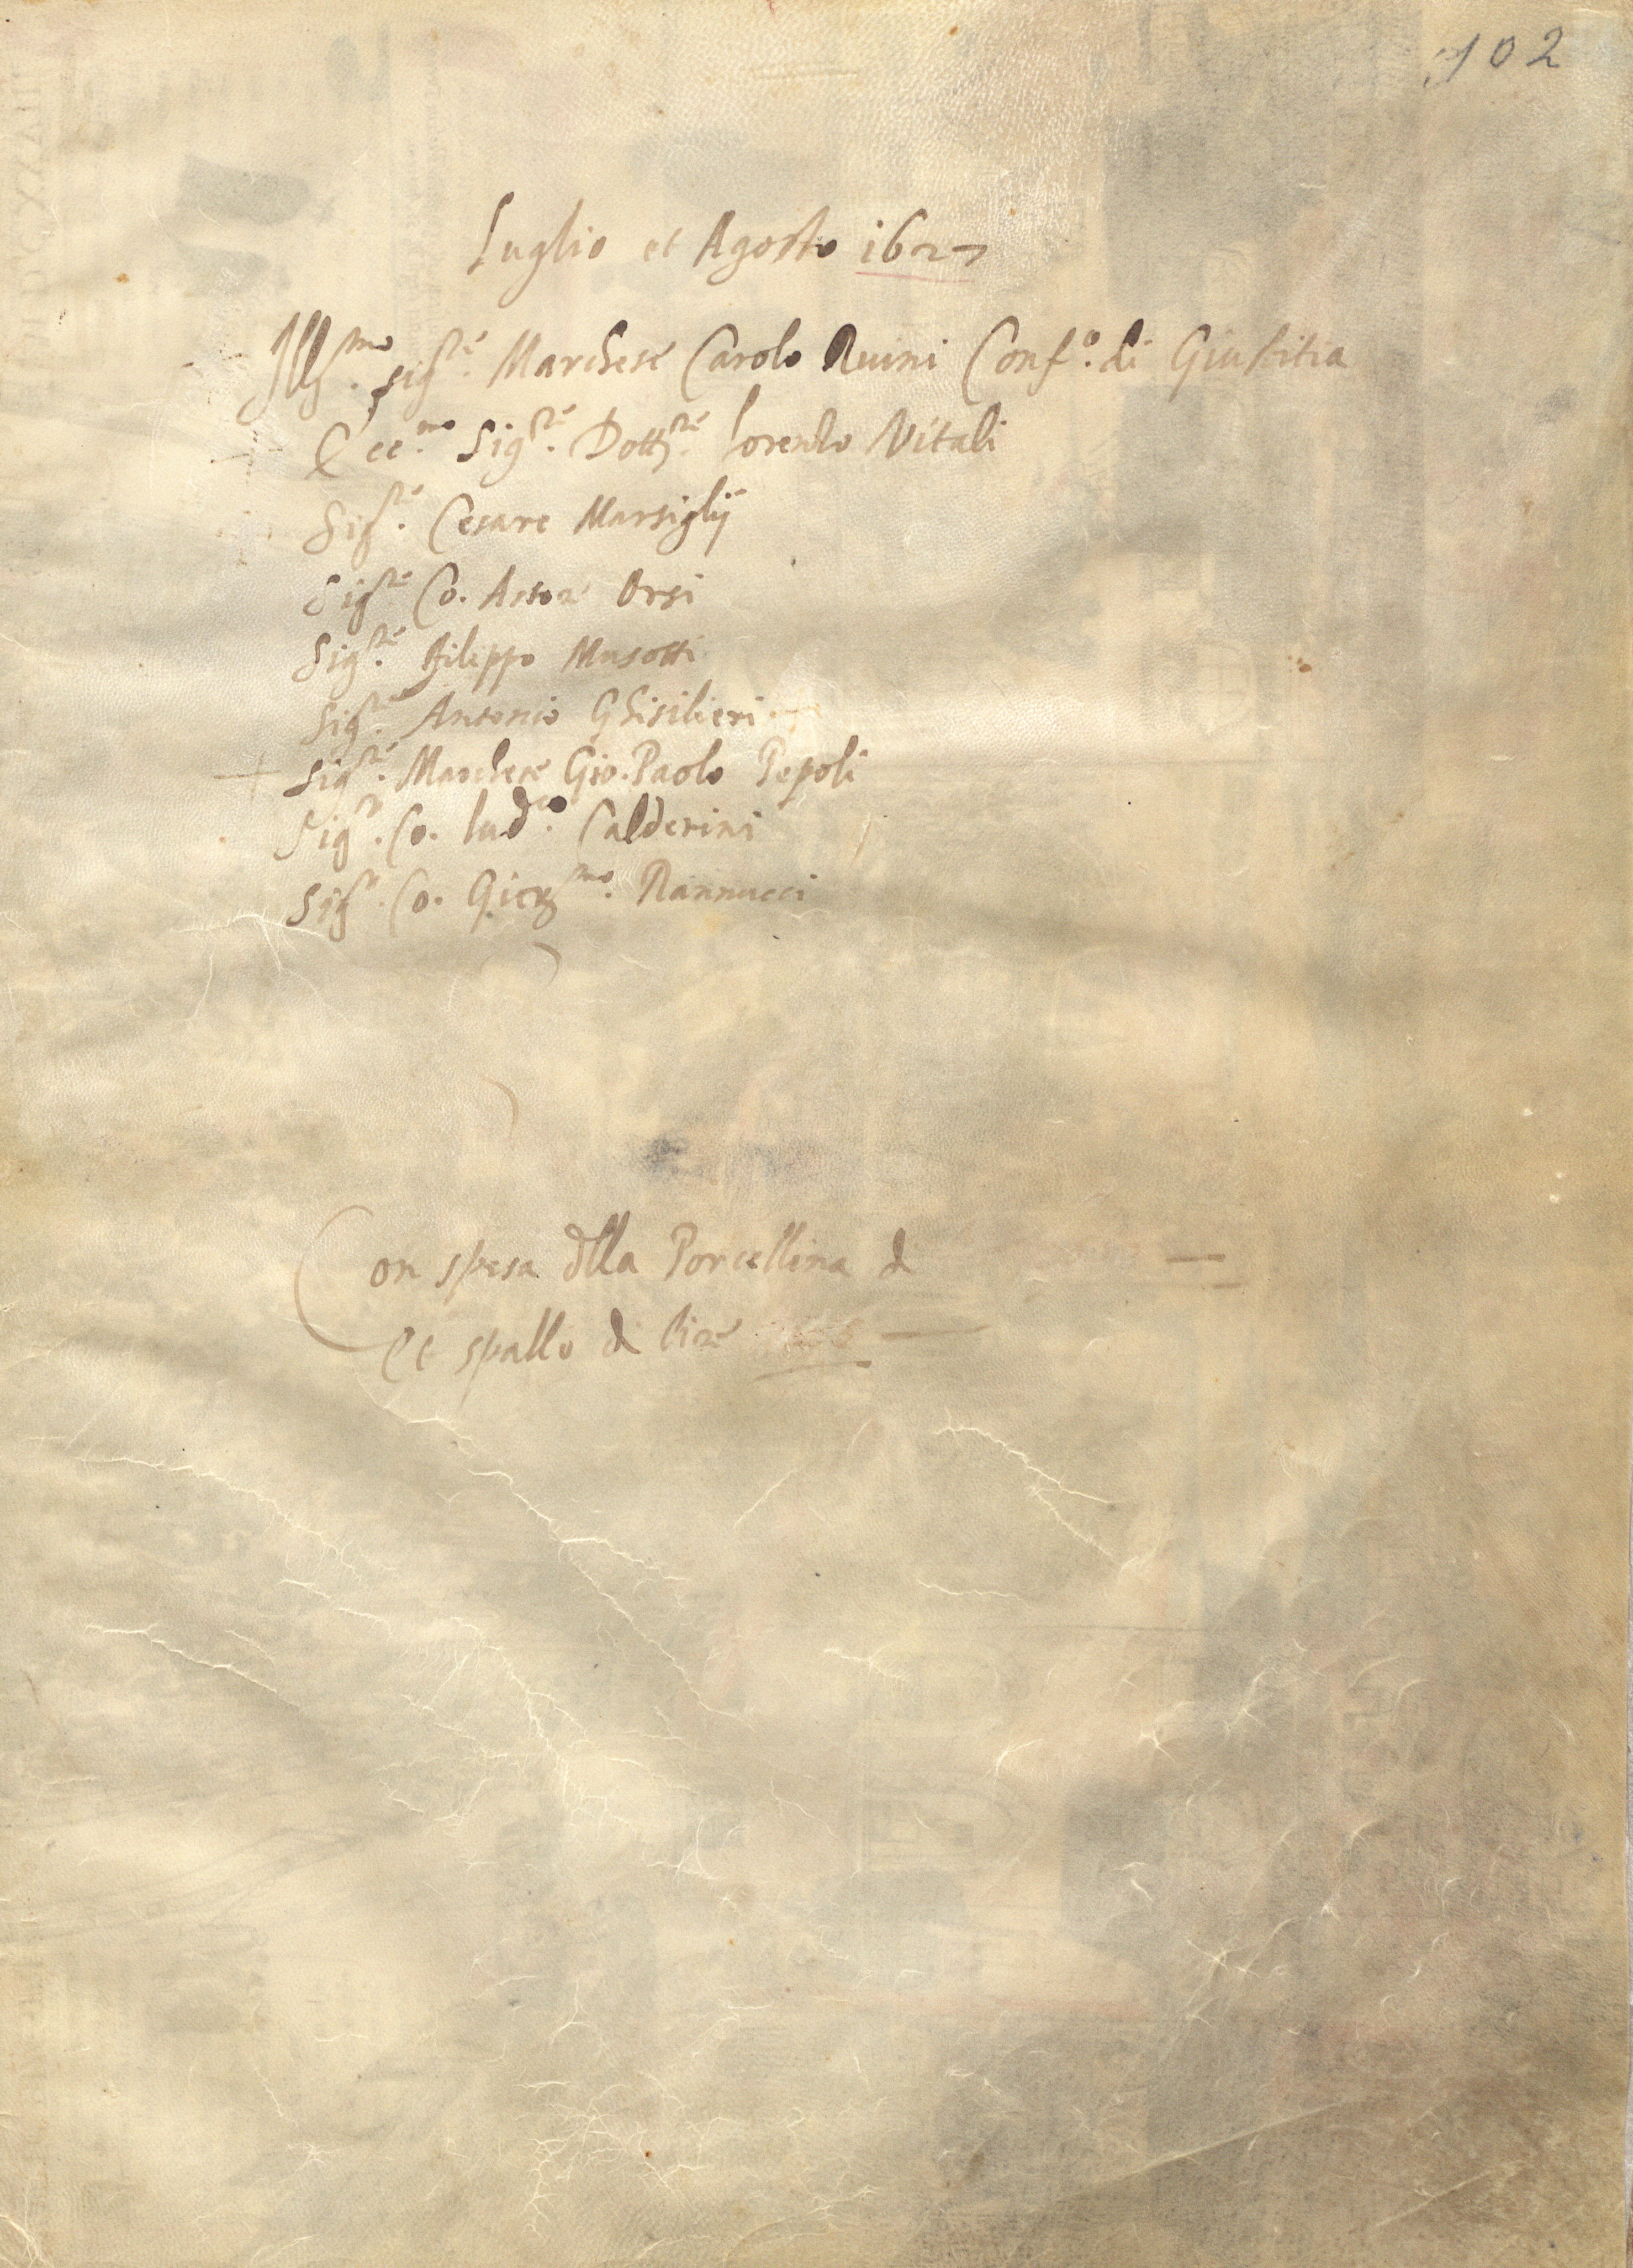 102
Luglio et Agosto 1627
Ill.mo Sig.re Marchese Carolo Ruini Conf.o di Giustitia
Ecc.mo Sig.re Dott.re Lorenzo Vitali
Sig.re Cesare Marsiglij
Sig.re Co. Astore Orsi
Sig.re Filippo Musotti
Sig.re Antonio Ghisilieri
Sig.re Marchese Gio. Paolo Pepoli
Sig.r Co. Lud.co Calderini
Sig.r Co. Gier.mo Rannucci
Con spesa dlla Porcellina d
Et spallo di lire